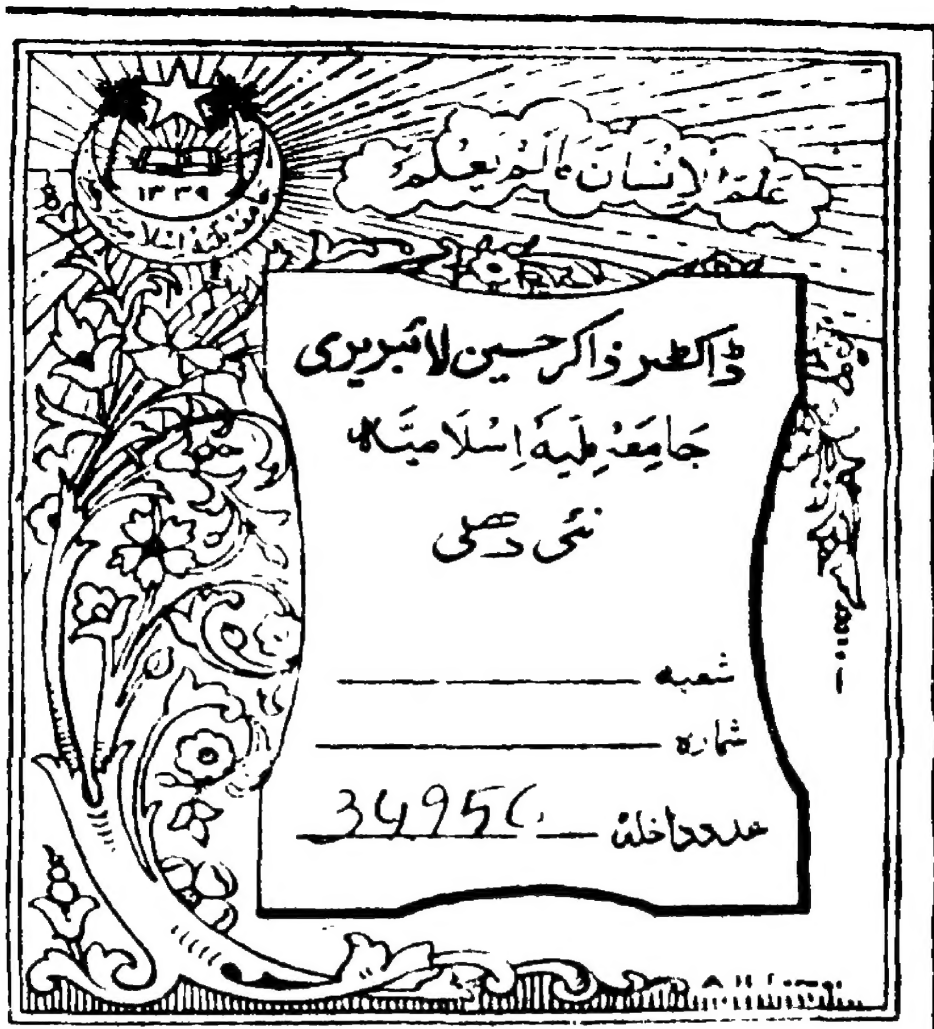 علم الانسان مالم يعلم
۱۳۳۹
ڈاکٹر ذاکر حسین لائبریری
جَامِعَہ مِلّیہ اِسْلَامیَّہ
نئی دہلی
شعبہ
شمارہ
عدد داخلہ 3495